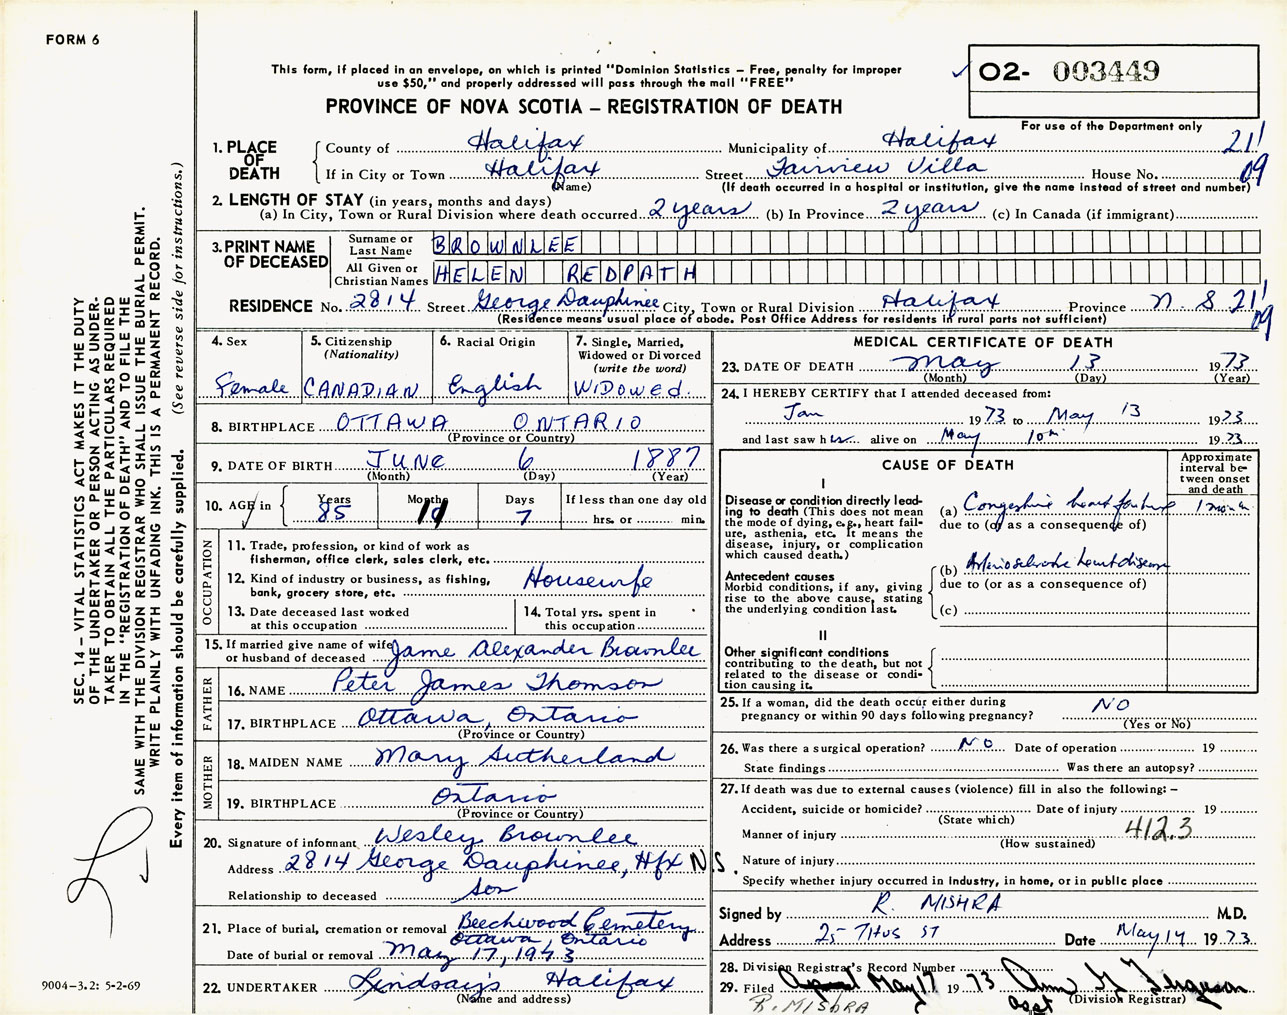 FORM 6
This form, if placed in an envelope, on which is printed "Dominion Statistics – Free, penalty for improper
use $50," and properly addressed will pass through the mail "FREE"
PROVINCE OF NOVA SCOTIA – REGISTRATION OF DEATH
02- 003449
For use of the Department only
1. PLACE OF DEATH
County of Halifax Municipality of Halifax 211
If in City or Town Halifax Street Fairview Villa House No. 09
(Name) (If death occurred in a hospital or institution, give the name instead of street and number)
2. LENGTH OF STAY (in years, months and days)
(a) In City, Town or Rural Division where death occurred 2 years (b) In Province 2 years (c) In Canada (if immigrant)
3. PRINT NAME OF DECEASED
Surname or Last Name BROWNLEE
All Given or Christian Names HELEN REDPATH
RESIDENCE No. 2814 Street George Dauphinee City, Town or Rural Division Halifax Province N S 211
(Residence means usual place of abode. Post Office Address for residents in rural parts not sufficient) 09
4. Sex Female
5. Citizenship (Nationality) CANADIAN
6. Racial Origin English
7. Single, Married, Widowed or Divorced (write the word) WIDOWED.
8. BIRTHPLACE OTTAWA ONTARIO
(Province or Country)
9. DATE OF BIRTH JUNE 6 1887
(Month) (Day) (Year)
10. AGE in Years 85 Months 11 Days 7 If less than one day old hrs. or min.
OCCUPATION
11. Trade, profession, or kind of work as
fisherman, office clerk, sales clerk, etc.
12. Kind of industry or business, as fishing,
bank, grocery store, etc. Housewife
13. Date deceased last worked
at this occupation
14. Total yrs. spent in
this occupation
15. If married give name of wife
or husband of deceased Jame Alexander Brownlee
FATHER
16. NAME Peter James Thomson
17. BIRTHPLACE Ottawa, Ontario
(Province or Country)
MOTHER
18. MAIDEN NAME Mary Sutherland
19. BIRTHPLACE Ontario
(Province or Country)
20. Signature of informant Wesley Brownlee
Address 2814 George Dauphinee, Hfx N.S.
Relationship to deceased Son
21. Place of burial, cremation or removal Beechwood Cemetery
Ottawa, Ontario
Date of burial or removal May 17, 1973
22. UNDERTAKER Lindsay's Halifax
(Name and address)
MEDICAL CERTIFICATE OF DEATH
23. DATE OF DEATH May 13 1973
(Month) (Day) (Year)
24. I HEREBY CERTIFY that I attended deceased from:
Jan 1973 to May 13 1973
and last saw her alive on May 10th 1973
CAUSE OF DEATH
Approximate interval between onset and death
I
Disease or condition directly lead-
ing to death (This does not mean
the mode of dying, e.g., heart fail-
ure, asthenia, etc. It means the
disease, injury, or complication
which caused death.)
(a) Congestive heart failure 1 month
due to (or as a consequence of)
Antecedent causes
Morbid conditions, if any, giving
rise to the above cause, stating
the underlying condition last.
(b) Arteriosclerotic heart disease
due to (or as a consequence of)
(c)
II
Other significant conditions
contributing to the death, but not
related to the disease or condi-
tion causing it.
25. If a woman, did the death occur either during
pregnancy or within 90 days following pregnancy? NO
(Yes or No)
26. Was there a surgical operation? NO Date of operation 19
State findings Was there an autopsy?
27. If death was due to external causes (violence) fill in also the following: –
Accident, suicide or homicide? Date of injury 19
(State which)
Manner of injury 412.3
(How sustained)
Nature of injury
Specify whether injury occurred in industry, in home, or in public place
Signed by R. MISHRA M.D.
Address 25 TITUS ST Date May 14 1973.
28. Division Registrar's Record Number
29. Filed May 17 1973 Ann G Ferguson
(Division Registrar)
R. MISHRA Asst
SEC. 14 – VITAL STATISTICS ACT MAKES IT THE DUTY
OF THE UNDERTAKER OR PERSON ACTING AS UNDER-
TAKER TO OBTAIN ALL THE PARTICULARS REQUIRED
IN THE "REGISTRATION OF DEATH" AND TO FILE THE
SAME WITH THE DIVISION REGISTRAR WHO SHALL ISSUE THE BURIAL PERMIT.
WRITE PLAINLY WITH UNFADING INK. THIS IS A PERMANENT RECORD.
Every item of information should be carefully supplied. (See reverse side for instructions.)
9004-3.2: 5-2-69